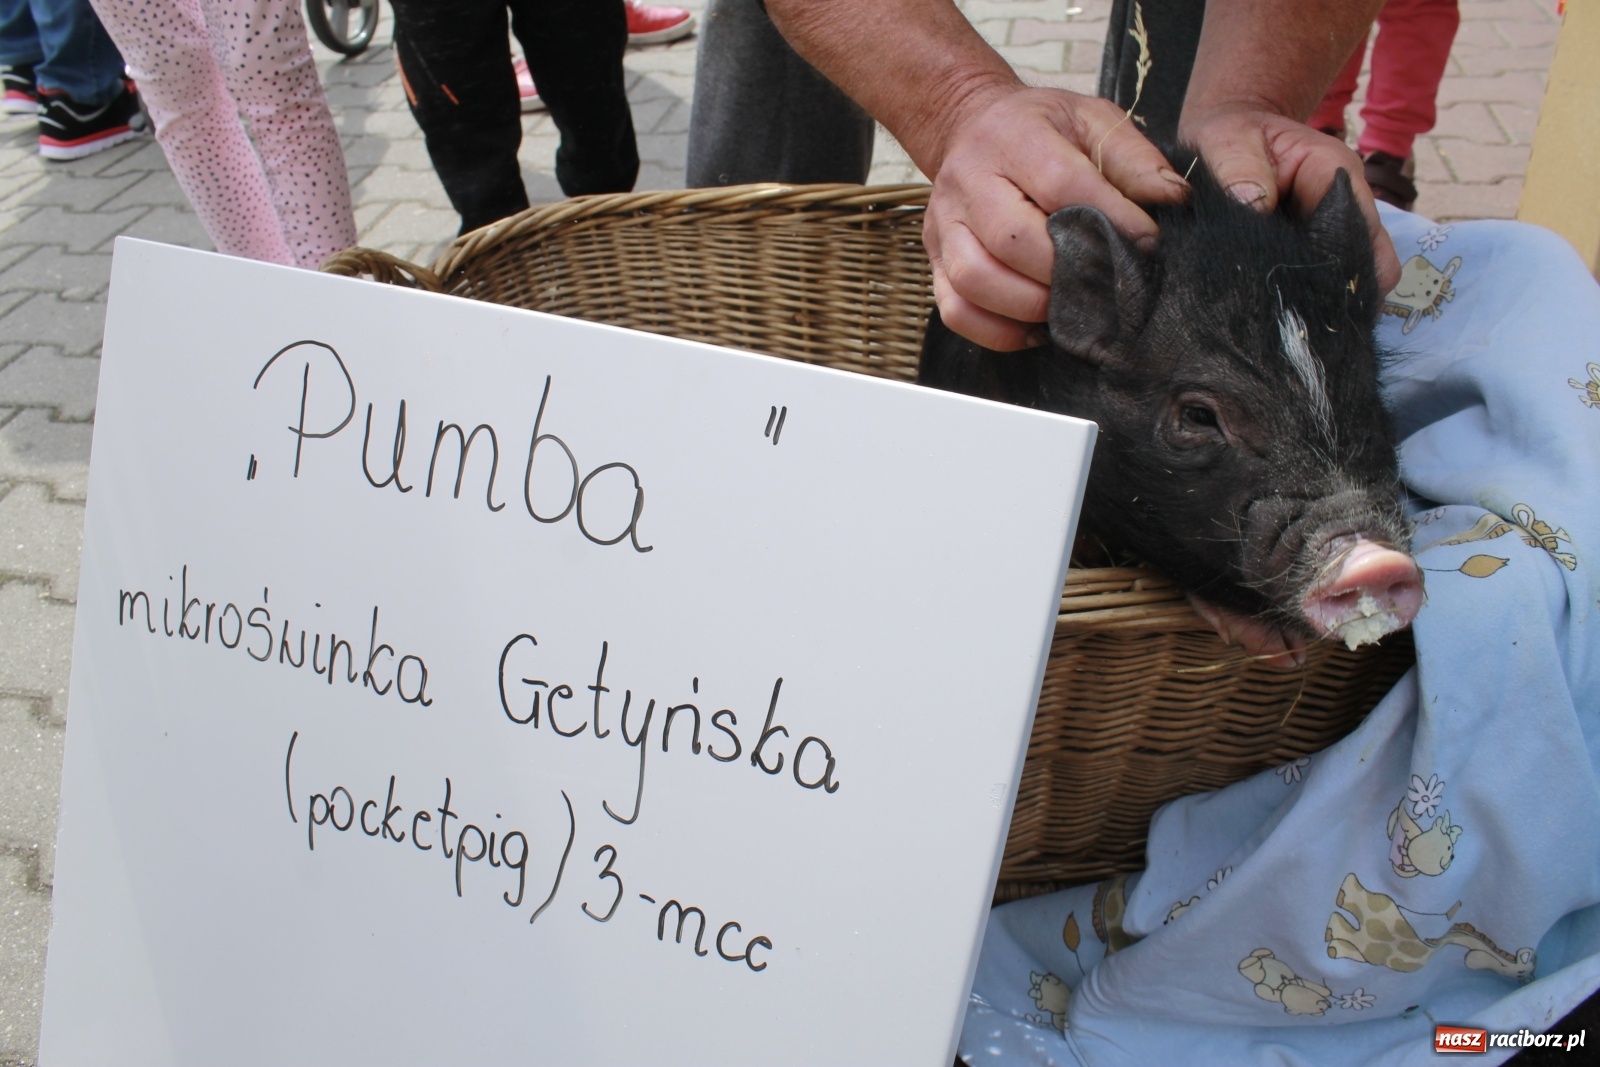 „Pumba"
mikroświnka Getyńska
(pocketpig) 3-mce
nasz raciborz.pl